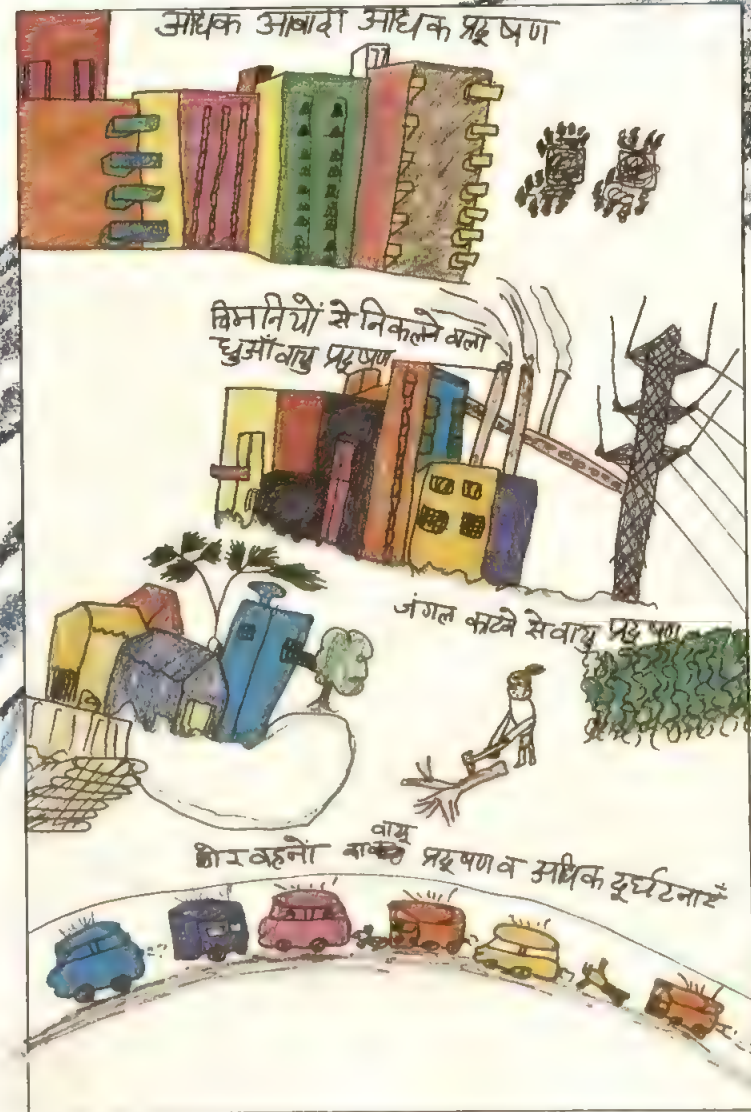 अधिक आबादी अधिक प्रदूषण
चिमनियों से निकलने वाला
धुआँ वायु प्रदूषण
जंगल काटने से वायु प्रदूषण
वायु
शोर वहनो प्रदूषण व अधिक दूर्घटनाएँ